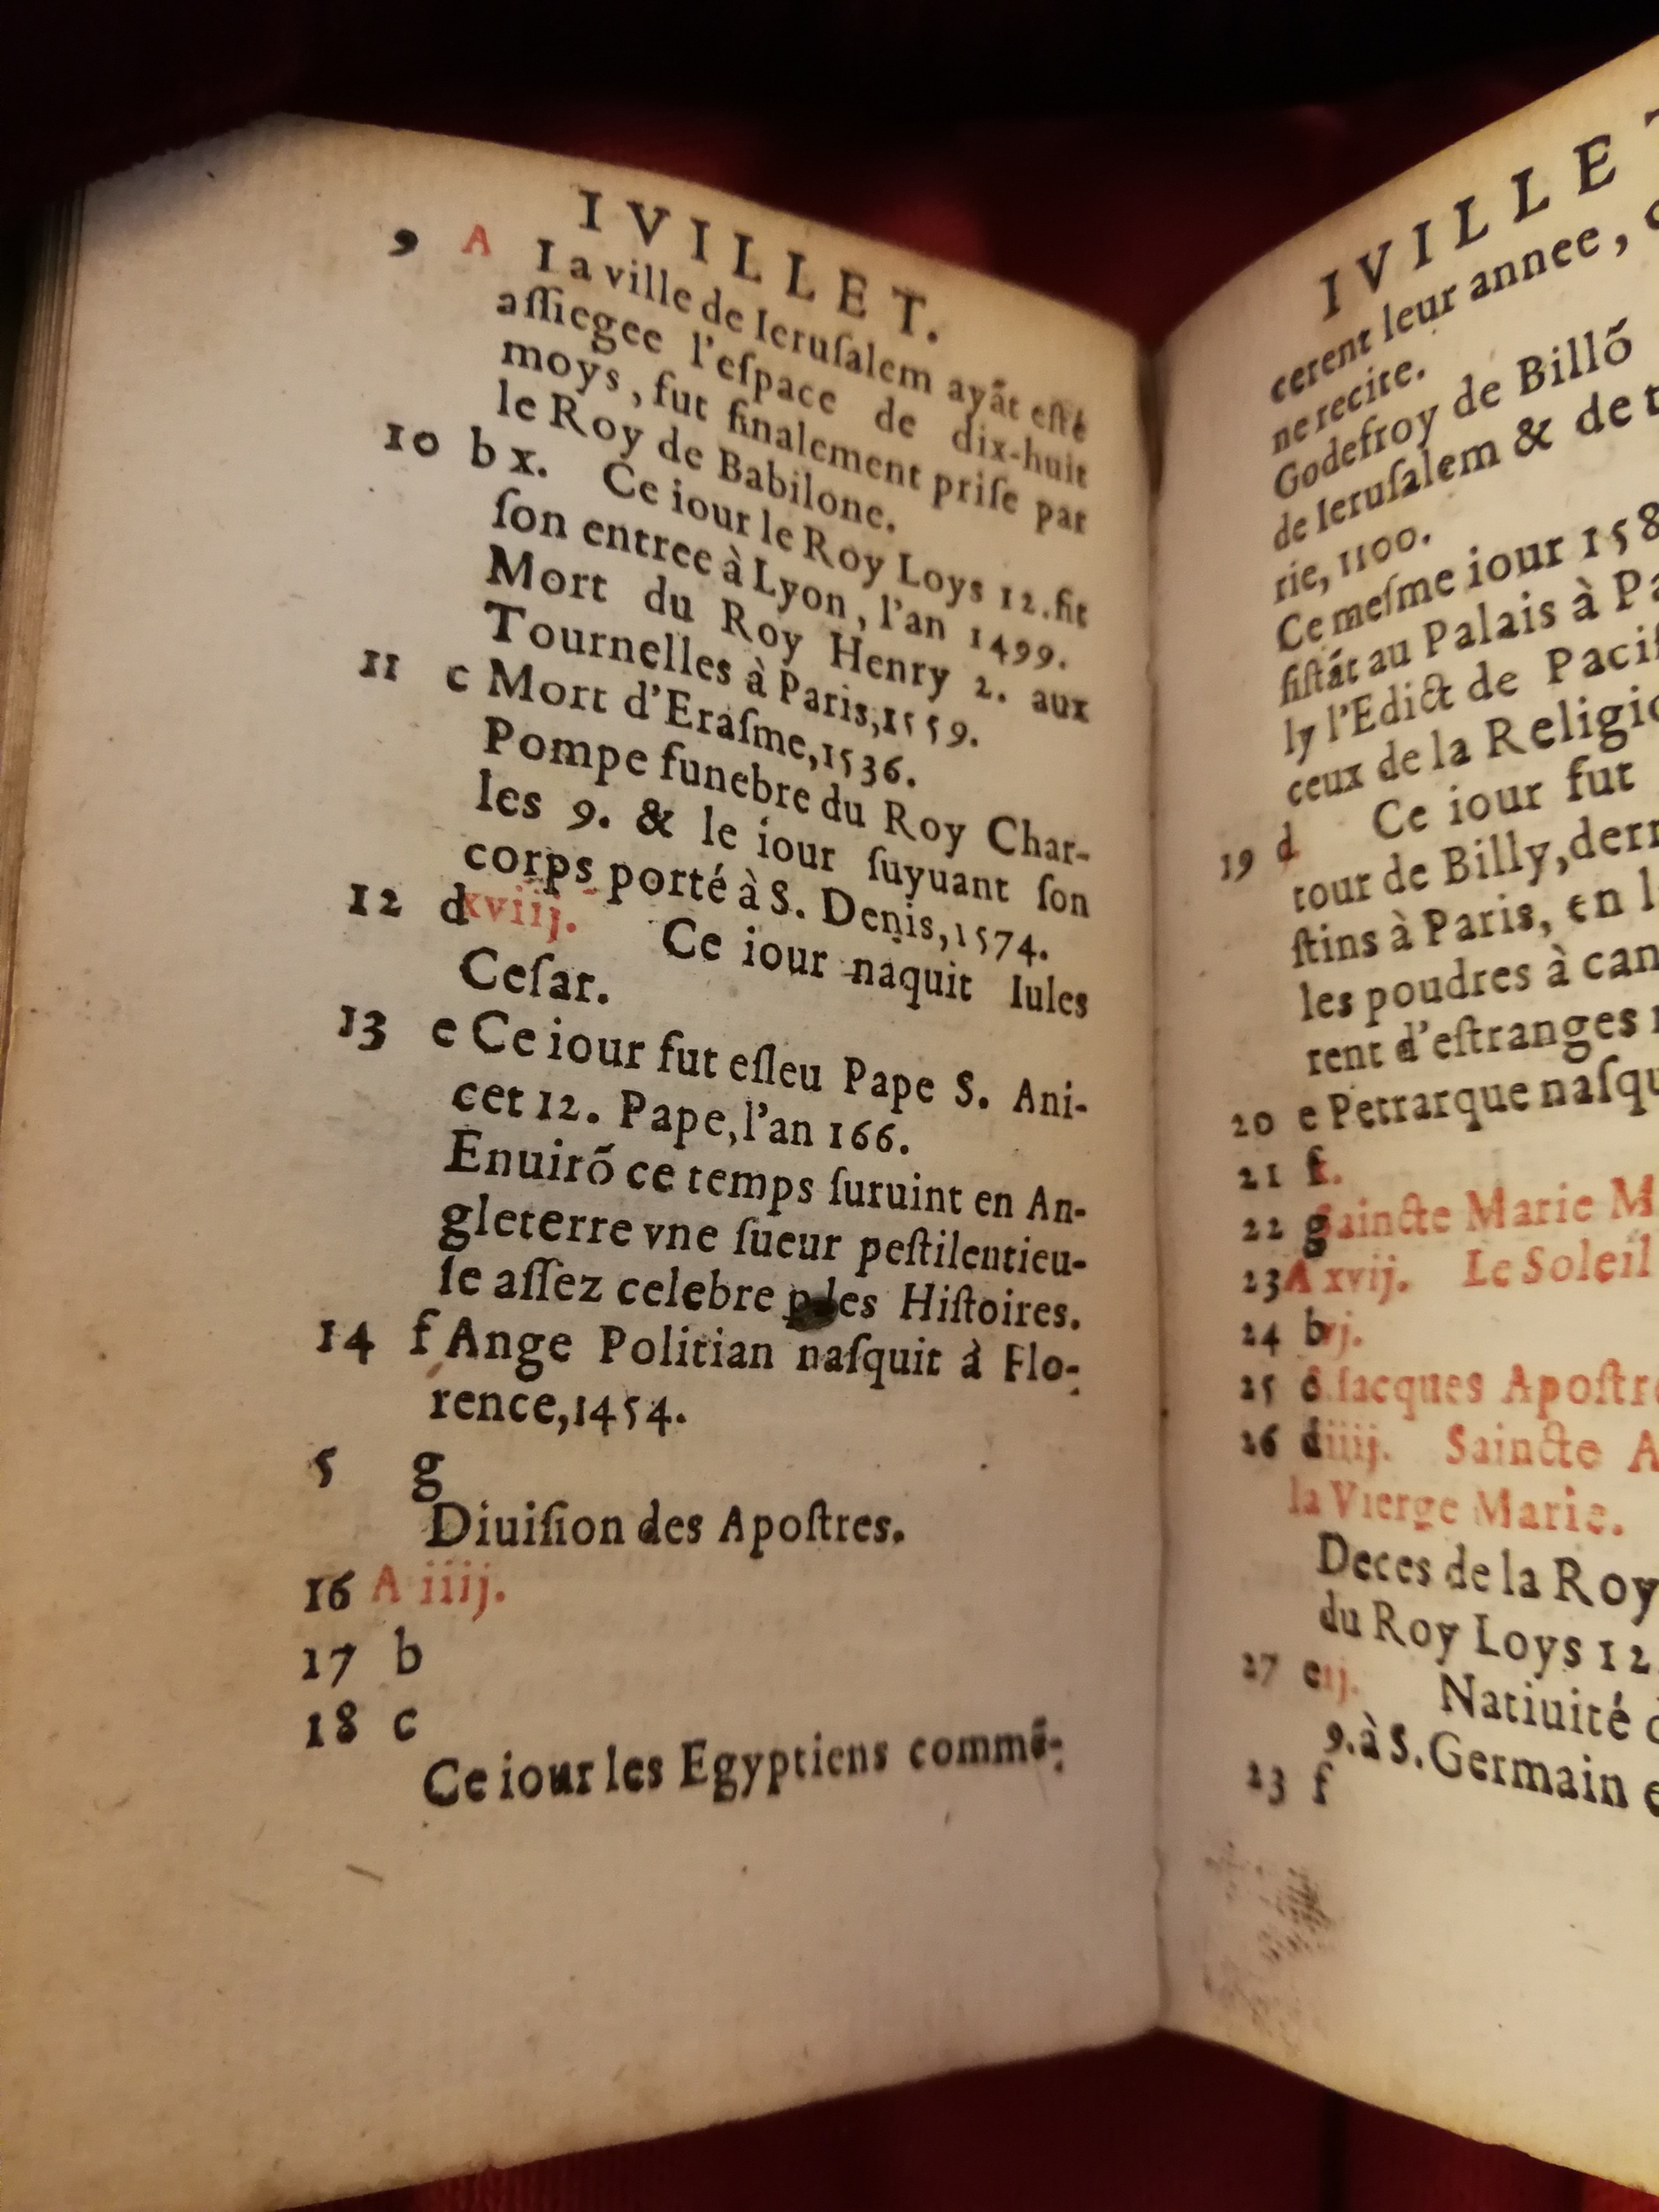 IVILLET.
9 A La ville de Ieruſalem ayāt eſté
aſſiegee l'eſpace de dix-huit
moys, fut finalement priſe par
le Roy de Babilone.
10 b x. Ce iour le Roy Loys 12. fit
ſon entree à Lyon, l'an 1499.
Mort du Roy Henry 2. aux
Tournelles à Paris, 1559.
11 c Mort d'Eraſme, 1536.
Pompe funebre du Roy Char-
les 9. & le iour ſuyuant ſon
corps porté à S. Denis, 1574.
12 d xviij. Ce iour naquit Iules
Ceſar.
13 e Ce iour fut eſleu Pape S. Ani-
cet 12. Pape, l'an 166.
Enuirō ce temps ſuruint en An-
gleterre vne ſueur peſtilentieu-
ſe aſſez celebre les Hiſtoires.
14 f Ange Politian naſquit à Flo-
rence, 1454.
5 g
Diuiſion des Apoſtres.
16 A iiij.
17 b
18 c
Ce iour les Egyptiens commē-
IVILLET
cerent leur annee,
ne recite.
Godefroy de Billō
de Ieruſalem & de
rie, 1100.
Ce meſme iour 158
ſiſtāt au Palais à Pa
ly l'Edict de Pacif
ceux de la Religio
19 d Ce iour fut
tour de Billy, derr
ſtins à Paris, en l
les poudres à can
rent d'eſtranges
20 e Petrarque naſqu
21 f
22 g Saincte Marie M
23 A xvij. Le Soleil
24 b vj.
25 c S. Iacques Apoſtr
26 d iiij. Saincte A
la Vierge Marie.
Deces de la Roy
du Roy Loys 12
27 e ij. Natiuité d
9. à S. Germain e
23 f